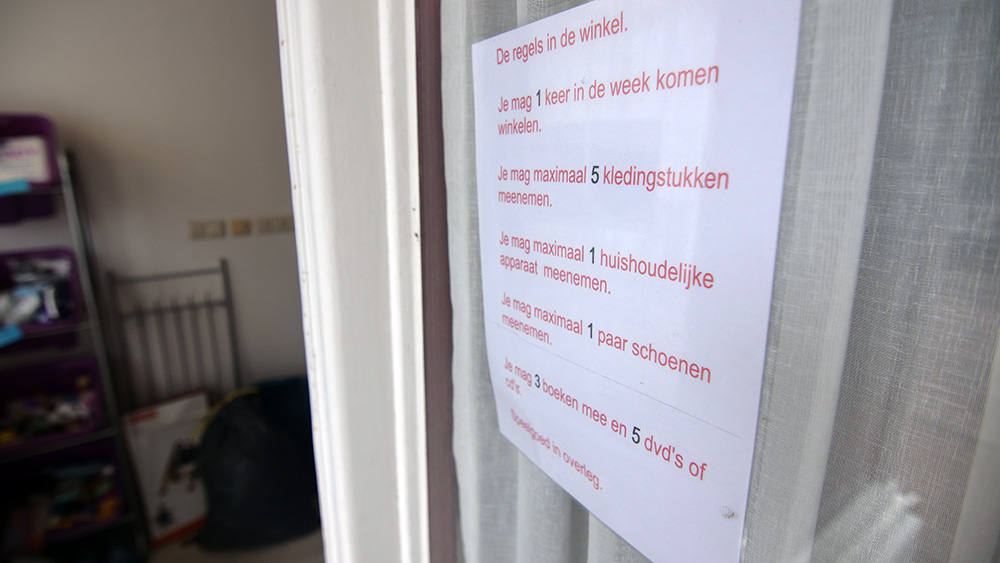 De regels in de winkel.
Je mag 1 keer in de week komen
winkelen.
Je mag maximaal 5 kledingstukken
meenemen.
Je mag maximaal 1 huishoudelijke
apparaat meenemen.
Je mag maximaal 1 paar schoenen
meenemen.
Je mag 3 boeken mee en 5 dvd's of
cd's.
Speelgoed in overleg.